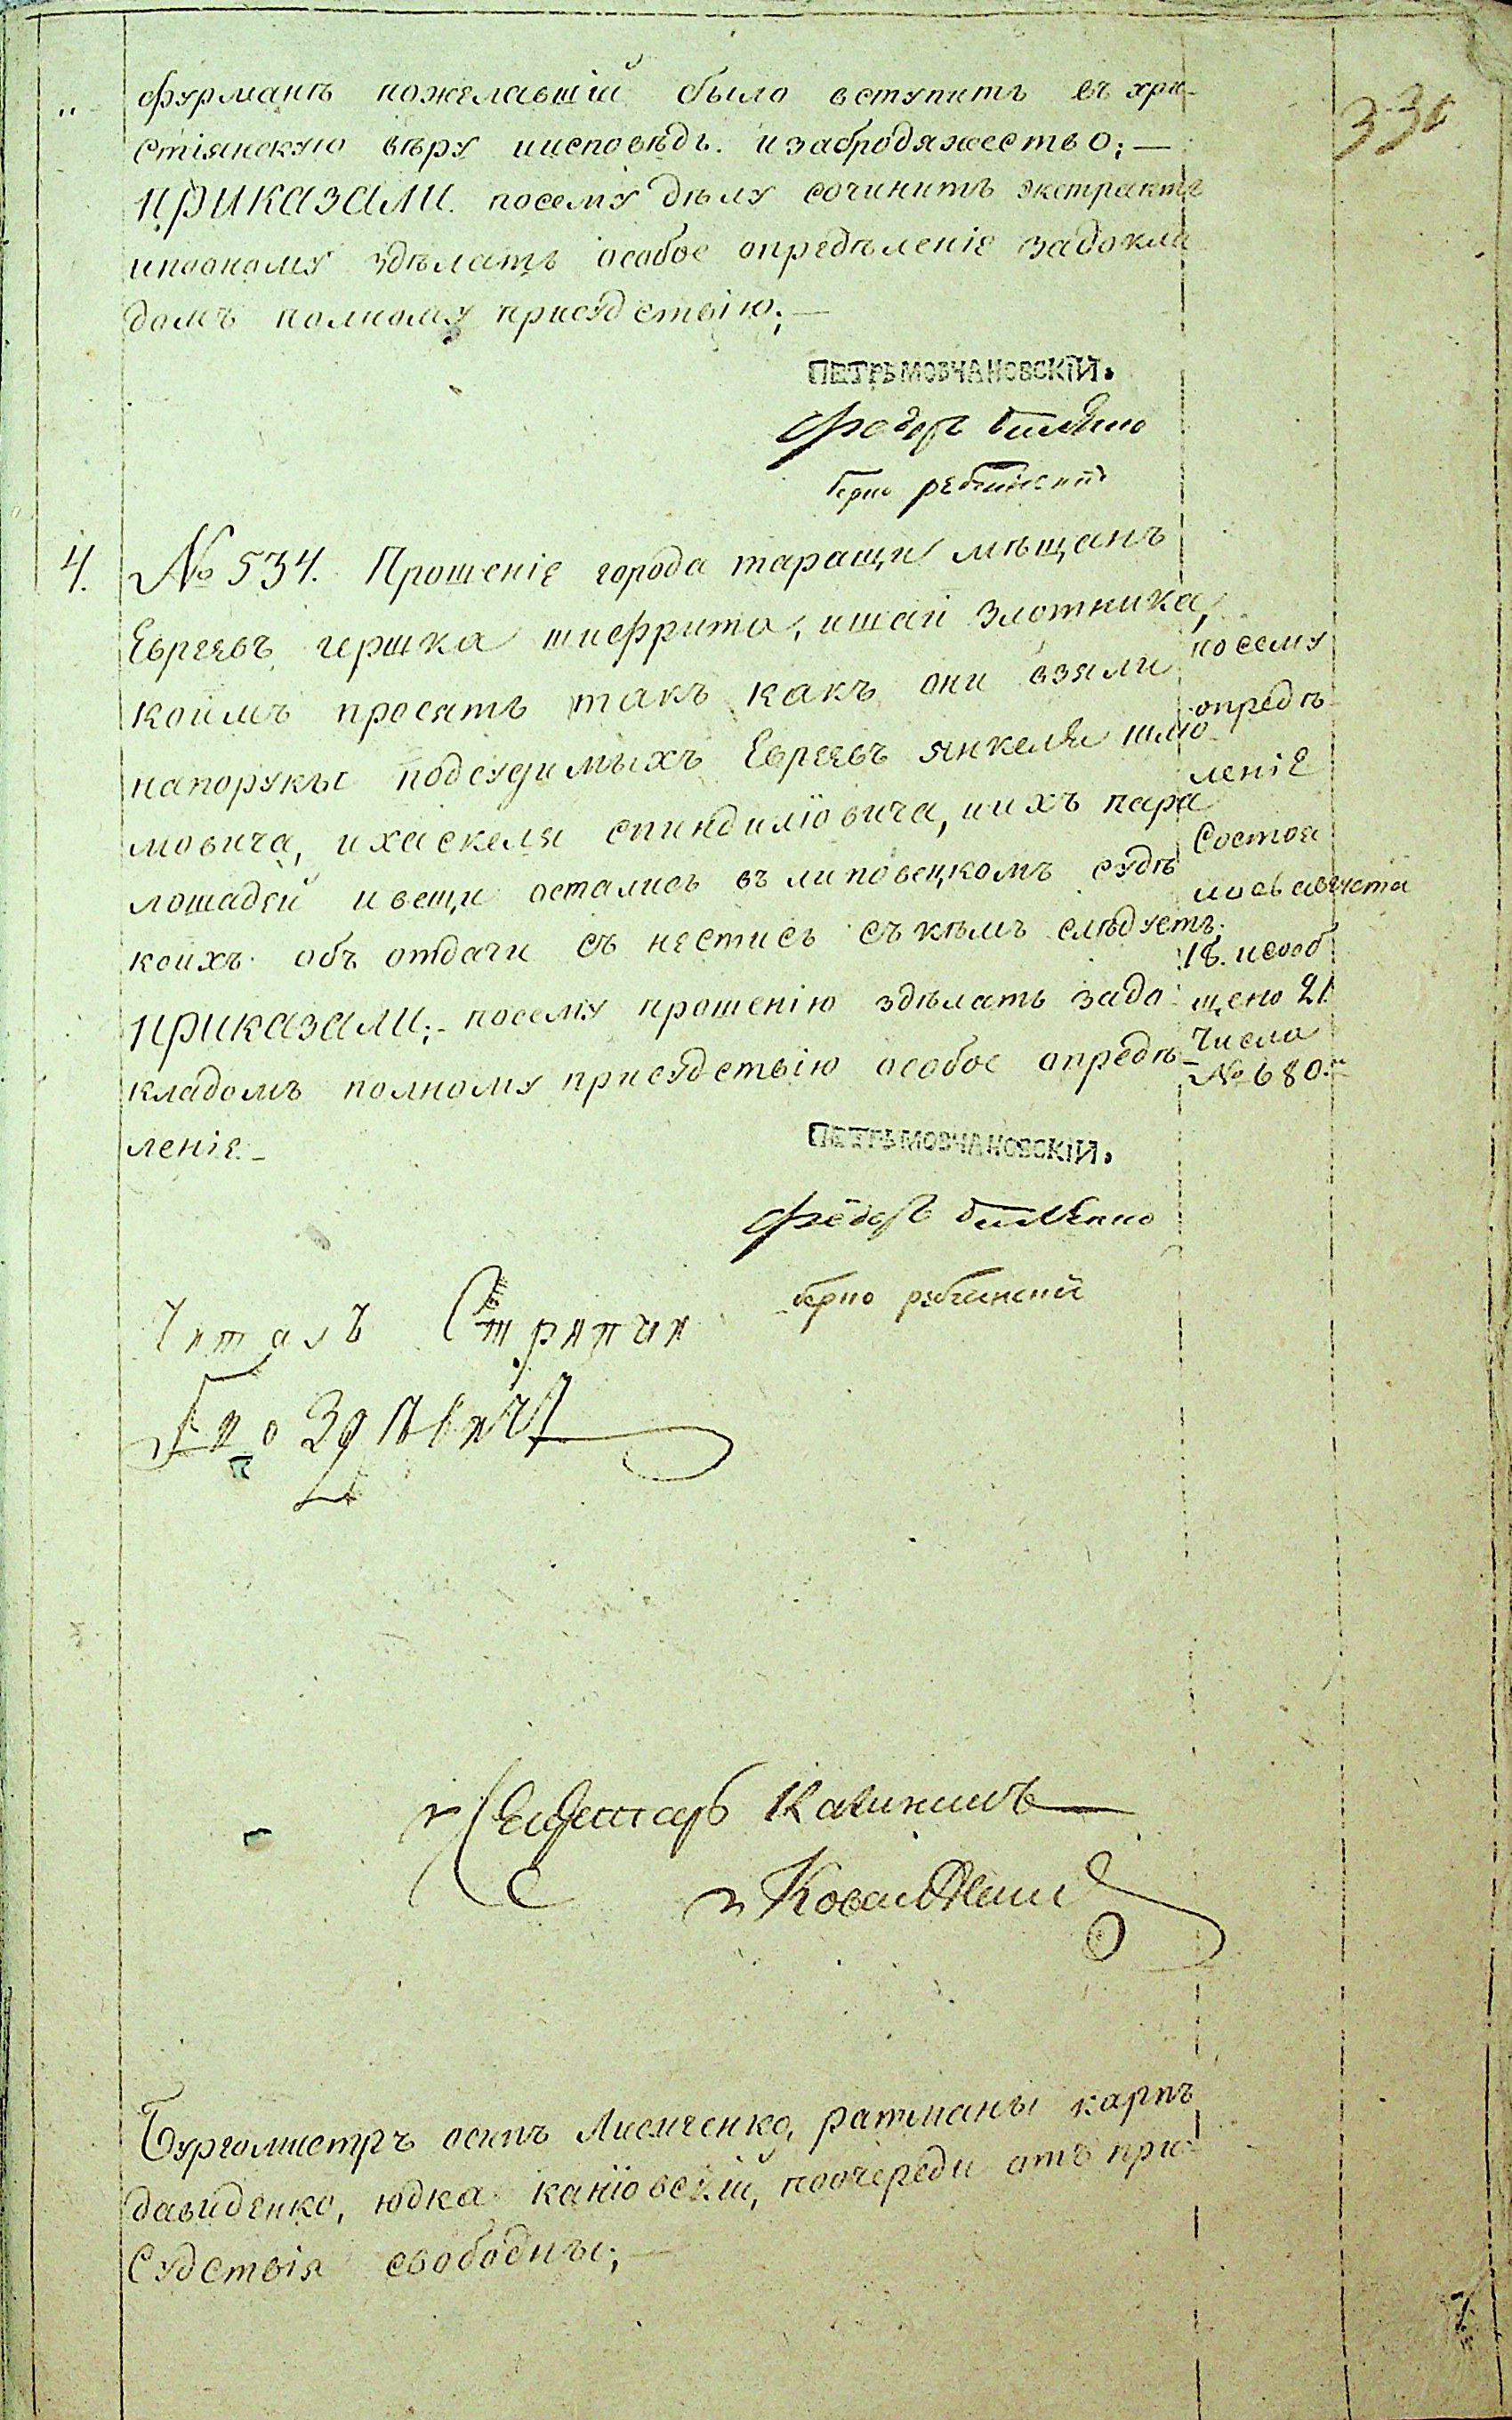 330
фурманъ пожелавшій было вступить въ хри-
стіянскую вѣру иисповѣдь. изабродяжество;—
приказали. посему дѣлу сочинить экстрактъ
ипооному здѣлать особое опредѣленіе задокла
домъ полному присудствію;—
ПЕТРЪ МОВЧАНОВСКІЙ.
Федоръ
4. № 534. Прошеніе города таращи мѣщанъ
Евреевъ гершка шифрита, ишаи злотника,
коимъ просятъ такъ какъ они взяли
напоруки подсудимыхъ Евреевъ янкеля шлио
мовича, ихаскеля спиндилiовича, иихъ пара
лошадей ивещи остались въ липовецкомъ судѣ
коихъ объ отдачи съ нестись съ кѣмъ слѣдуетъ.
приказали;- посему прошенію здѣлать задо
кладомъ полному присудствію особое опредѣ-
леніе-
посему
опредѣ
леніе
Состоя
лось августа
18. исооб
щено 21
Числа
№ 680.
ПЕТРЪ МОВЧАНОВСКІЙ.
Федоръ
берко
Читалъ Стряпчи
Секретарь
Бургомистръ осипъ Лисиченко, ратманы карпъ
давиденко, юдка каніовскій, поочереди отъ при-
Судствія свободны;—